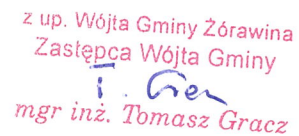 z up. Wójta Gminy Żórawina
Zastępca Wójta Gminy
mgr inż. Tomasz Gracz